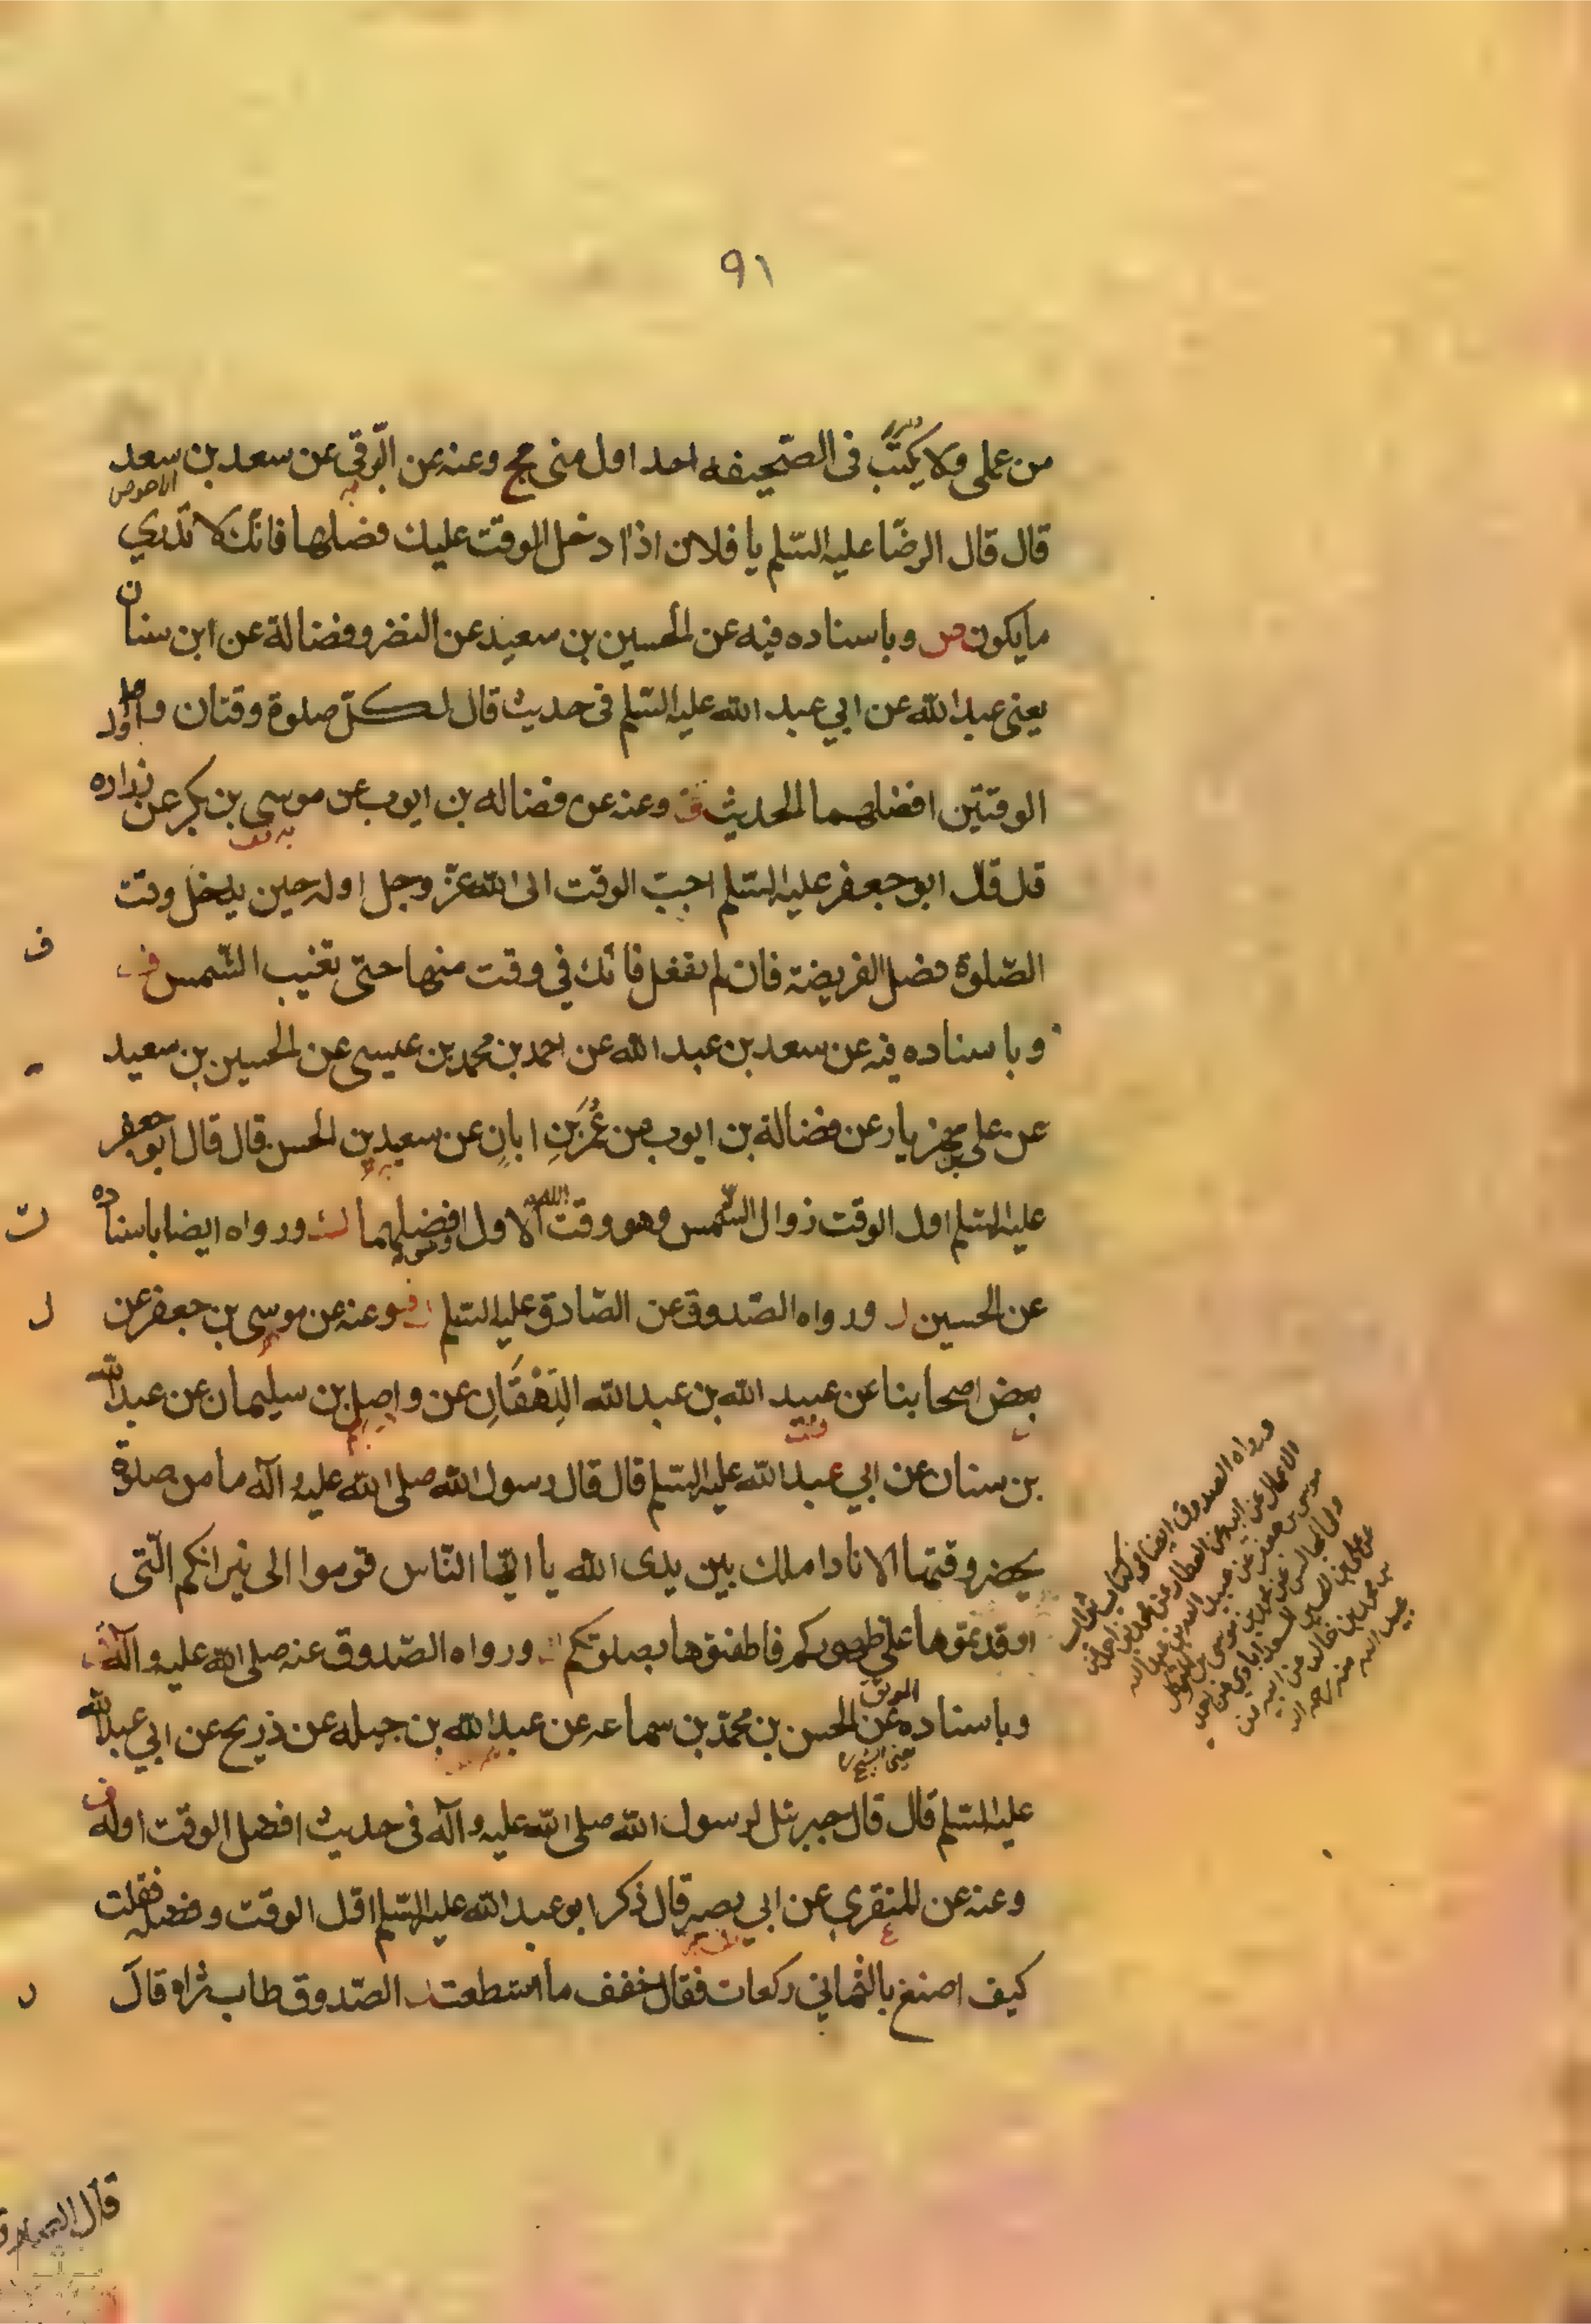 ٩١
من عملى ولا يكتب فى الصحيفه احد اول منى مح وعنه عن البرقي عن سعد بن سعد
الاحوص
قال قال الرضا عليه السلم يا فلان اذا دخل الوقت عليك فصلها فانك لا تدري
ما يكون ص وباسناده فيه عن الحسين بن سعيد عن النضر وفضالة عن ابن سنان
يعنى عبد الله عن ابي عبد الله عليه السلم فى حديث قال لكل صلوة وقتان واول
الوقتين افضلهما الحديث وعنه عن فضاله بن ايوب عن موسى بن بكر عن زراره
قال قال ابو جعفر عليه السلم احب الوقت الى الله عز وجل اوله حين يدخل وقت
الصلوة فصل الفريضة فان لم تفعل فانك في وقت منها حتى تغيب الشمس
ف
وباسناده فيه عن سعد بن عبد الله عن احمد بن محمد بن عيسى عن الحسين بن سعيد
عن على بن مهزيار عن فضالة بن ايوب عن عمر بن ابان عن سعيد بن الحسن قال قال ابو جعفر
عليه السلم اول الوقت زوال الشمس وهو وقت الله الاول افضلهما ورواه ايضا باسناده
ت
عن الحسين ورواه الصدوق عن الصادق عليه السلم وعنه عن موسى بن جعفر عن
ل
بعض اصحابنا عن عبيد الله بن عبد الله الدِهْقَانِ عن واصل بن سليمان عن عبد الله
بن سنان عن ابي عبد الله عليه السلم قال قال رسول الله صلى الله عليه وآله ما من صلوة
يحضر وقتها الا نادا ملك بين يدى الله يا ايها الناس قوموا الى نيرانكم التى
اوقدتموها على ظهوركم فاطفئوها بصلوتكم ورواه الصدوق عنه صلى الله عليه وآله
وباسناده عن الحسن بن محمد بن سماعه عن عبد الله بن جبله عن ذريح عن ابي عبد الله
عليه السلم قال قال جبرئل لرسول الله صلى الله عليه وآله فى حديث افضل الوقت اوله
وعنه عن المنقري عن ابي بصير قال ذكر ابو عبد الله عليه السلم اول الوقت وفضله فقلت
كيف اصنع بالثماني ركعات فقال خفف ما استطعت الصدوق طاب ثراه قال
ورواه الصدوق ايضا فى كتاب ثواب
الاعمال عن ابيه عن العطار عن محمد بن احمد عن
موسى بن جعفر عن عبيد الله بن عبد الله
وفى المجالس عن محمد بن موسى بن المتوكل
عن على بن الحسين السعدآبادي عن احمد
بن محمد بن خالد عن ابيه عن
عبيد الله منه رحمه الله